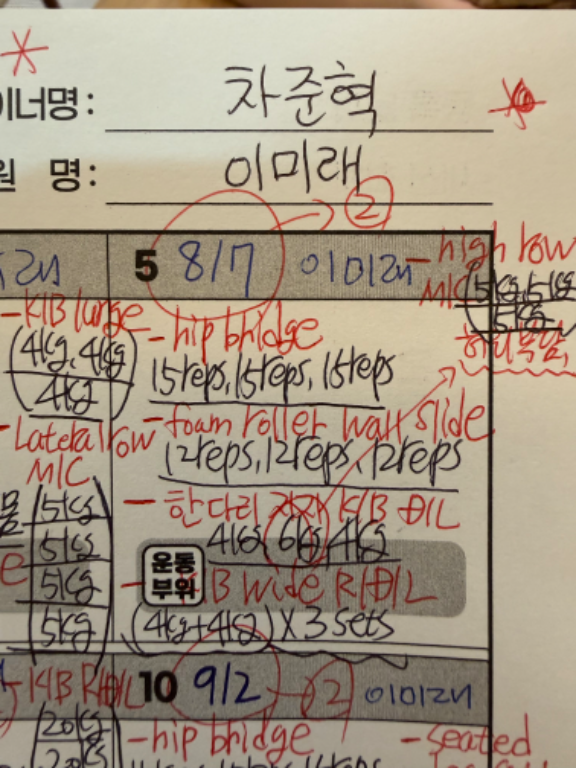 이너명: 차준혁
원 명: 이미래
②
5 8/7 이미래
- high row
M/C (5kg, 5kg
5kg
허리 복압,
- K/B lunge
(4kg, 4kg
4kg)
- Lateral row
M/C
5kg
5kg
5kg
5kg
- hip bridge
15reps, 15reps, 15reps
- foam roller wall slide
12reps, 12reps, 12reps
- 한다리 K/B D/L
4kg, 6kg, 4kg
운동
부위
B wide R/D/L
(4kg+4kg) X 3 sets
- K/B R/D/L
20kg
10 9/2 2 이미래
- hip bridge
- seated